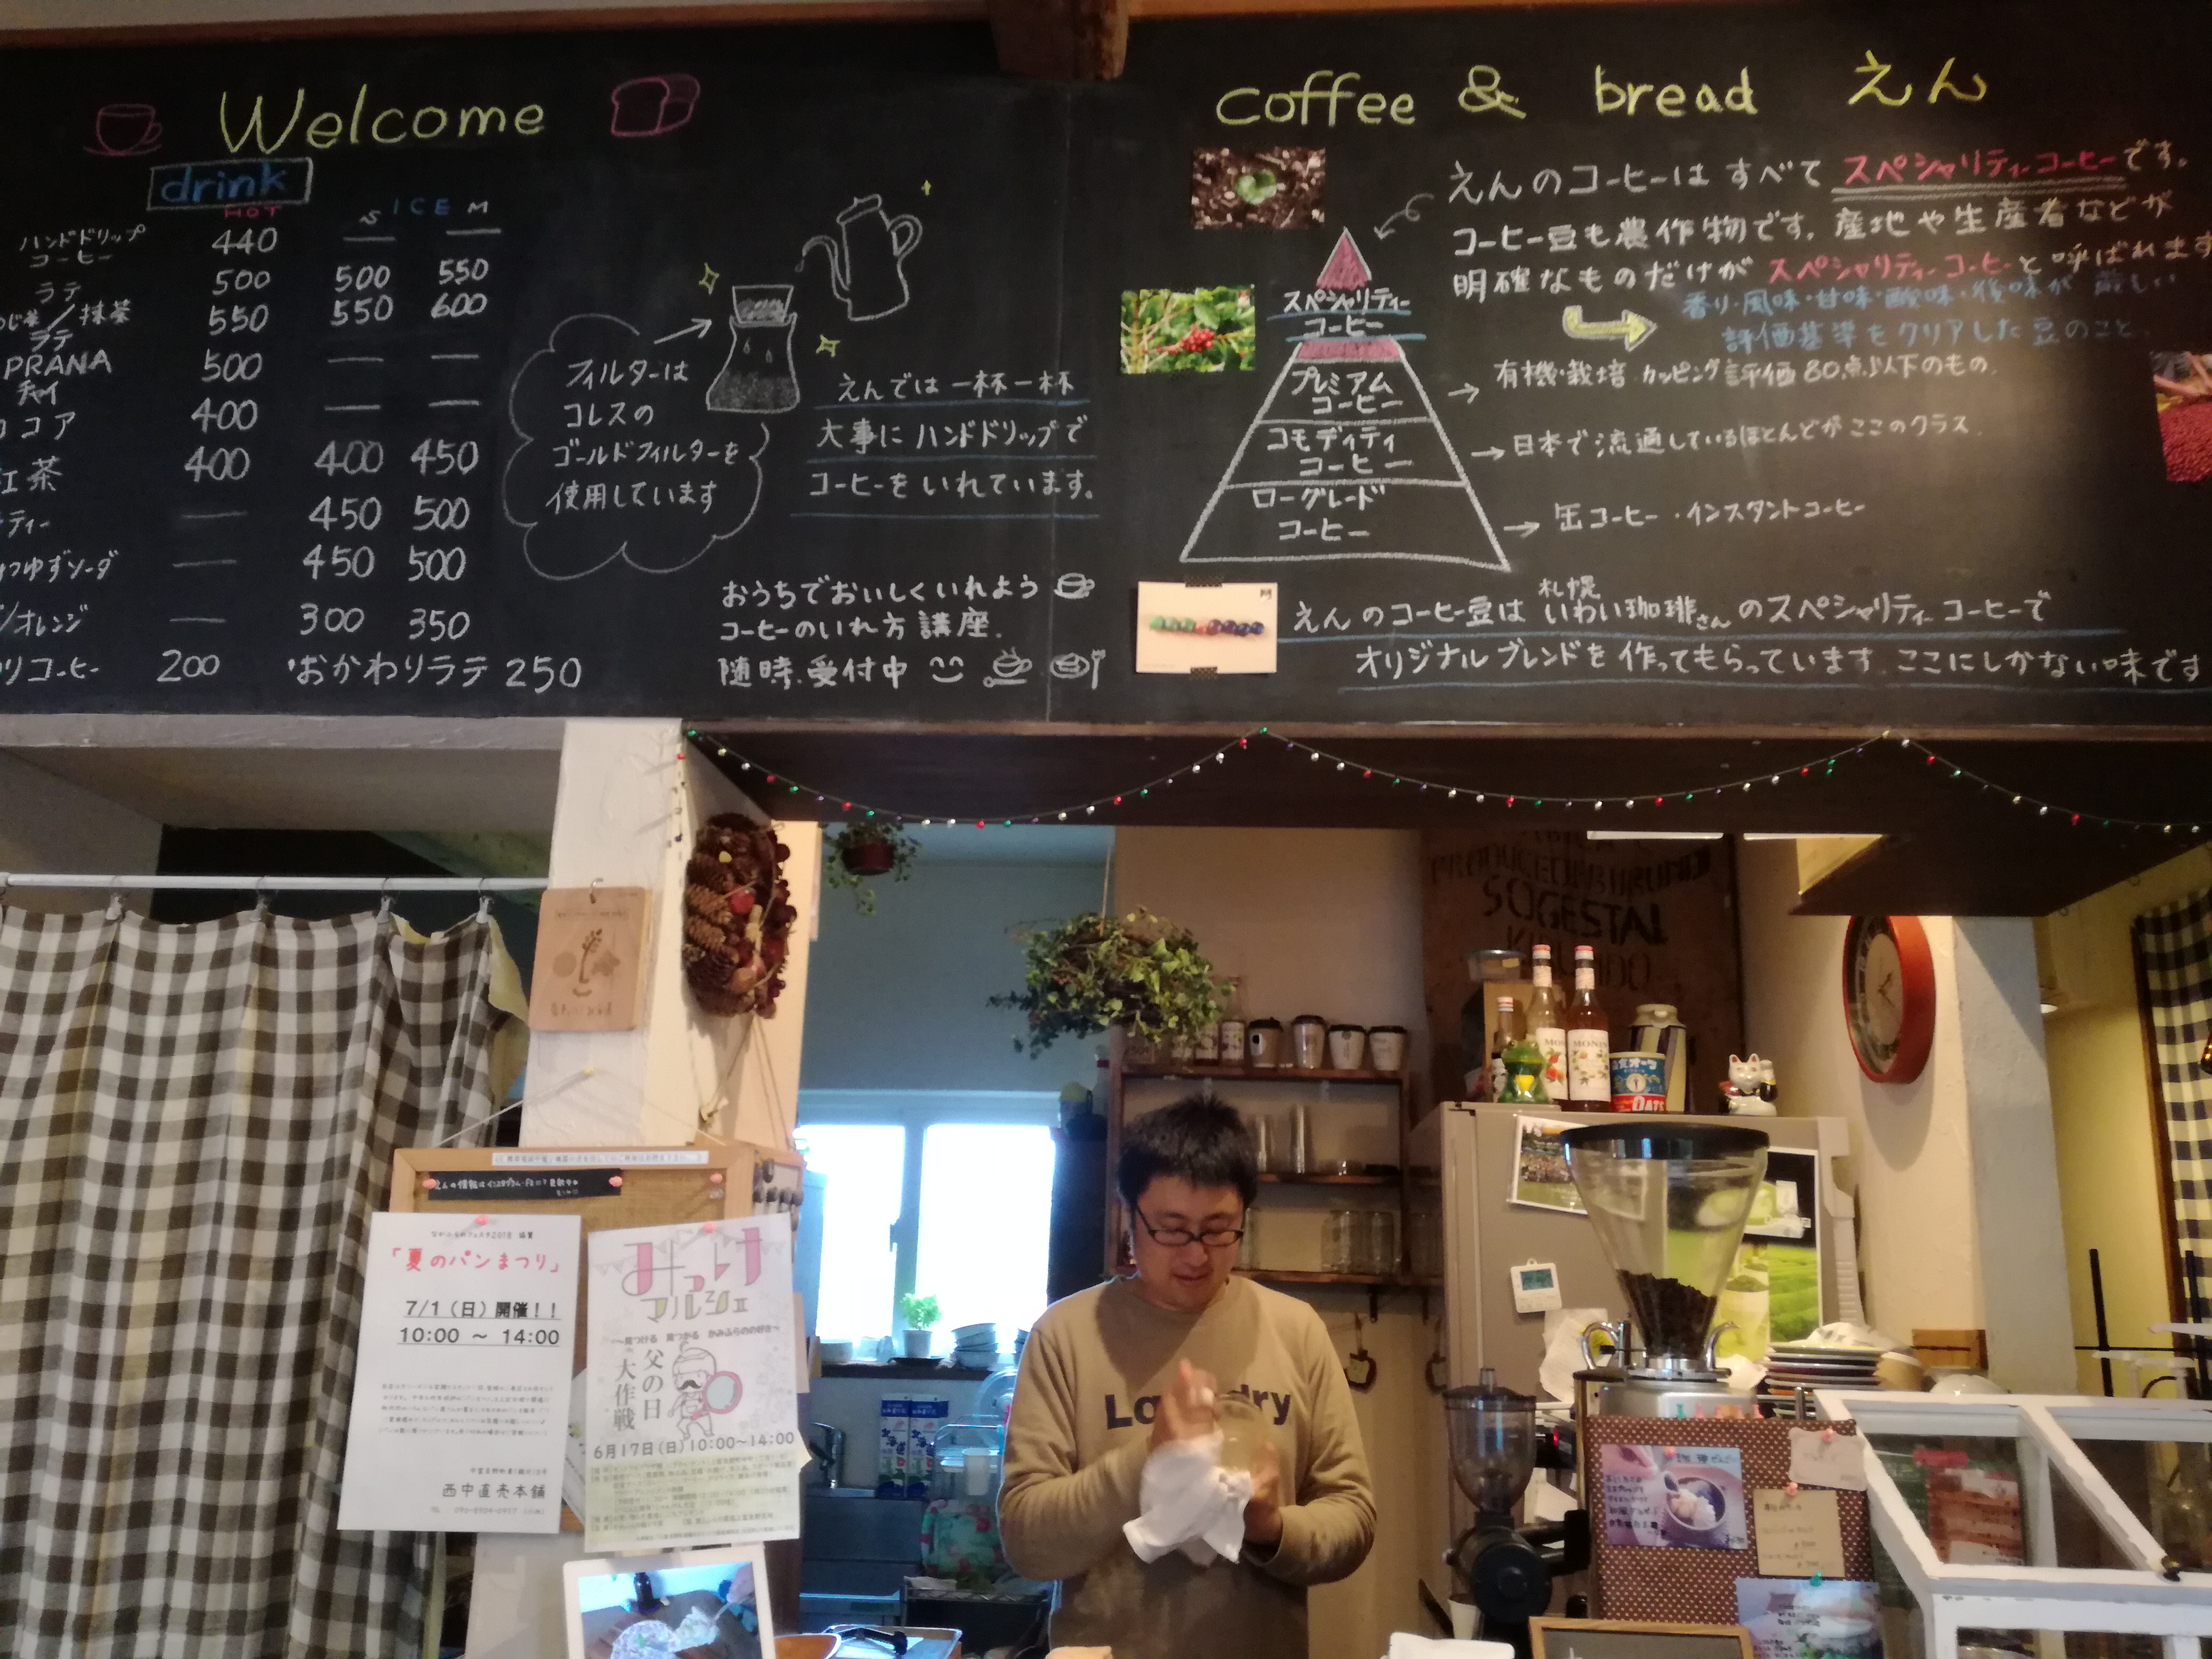 Welcome
drink
HOT
ICE
S M
ハンドドリップ
コーヒー
440
ラテ 500 500 550
じ茶／抹茶
ラテ
550 550 600
PRANA
チャイ
500
ココア 400
紅茶 400 400 450
ティー 450 500
ゆずソーダ 450 500
／オレンジ 300 350
リコーヒー 200 ・おかわりラテ 250
フィルターは
コレスの
ゴールドフィルターを
使用しています
えんでは一杯一杯
大事にハンドドリップで
コーヒーをいれています。
おうちでおいしくいれよう
コーヒーのいれ方講座.
随時、受付中
coffee & bread えん
えんのコーヒーは すべて スペシャリティーコーヒーです。
コーヒー豆も農作物です。産地や生産者などが
明確なものだけが スペシャリティーコーヒーと呼ばれます
香り・風味・甘味・酸味・後味が 厳しい
評価基準をクリアした豆のこと。
スペシャリティー
コーヒー
プレミアム
コーヒー
有機・栽培.カッピング評価80点以下のもの.
コモディティ
コーヒー
日本で流通しているほとんどがここのクラス
ローグレード
コーヒー
缶コーヒー・インスタントコーヒー
札幌
えんのコーヒー豆は いわい珈琲さんのスペシャリティーコーヒーで
オリジナルブレンドを作ってもらっています.ここにしかない味です
SOGESTAL
MONIN
OATS
Laundry
えんの情報はインスタグラム・FBにて更新中
「夏のパンまつり」
7/1（日）開催！！
10:00 ～ 14:00
西中直売本舗
みっけ
マルシェ
～見つける 見つかる かみふらのの好き～
父の日
大作戦
6月17日(日)10:00～14:00